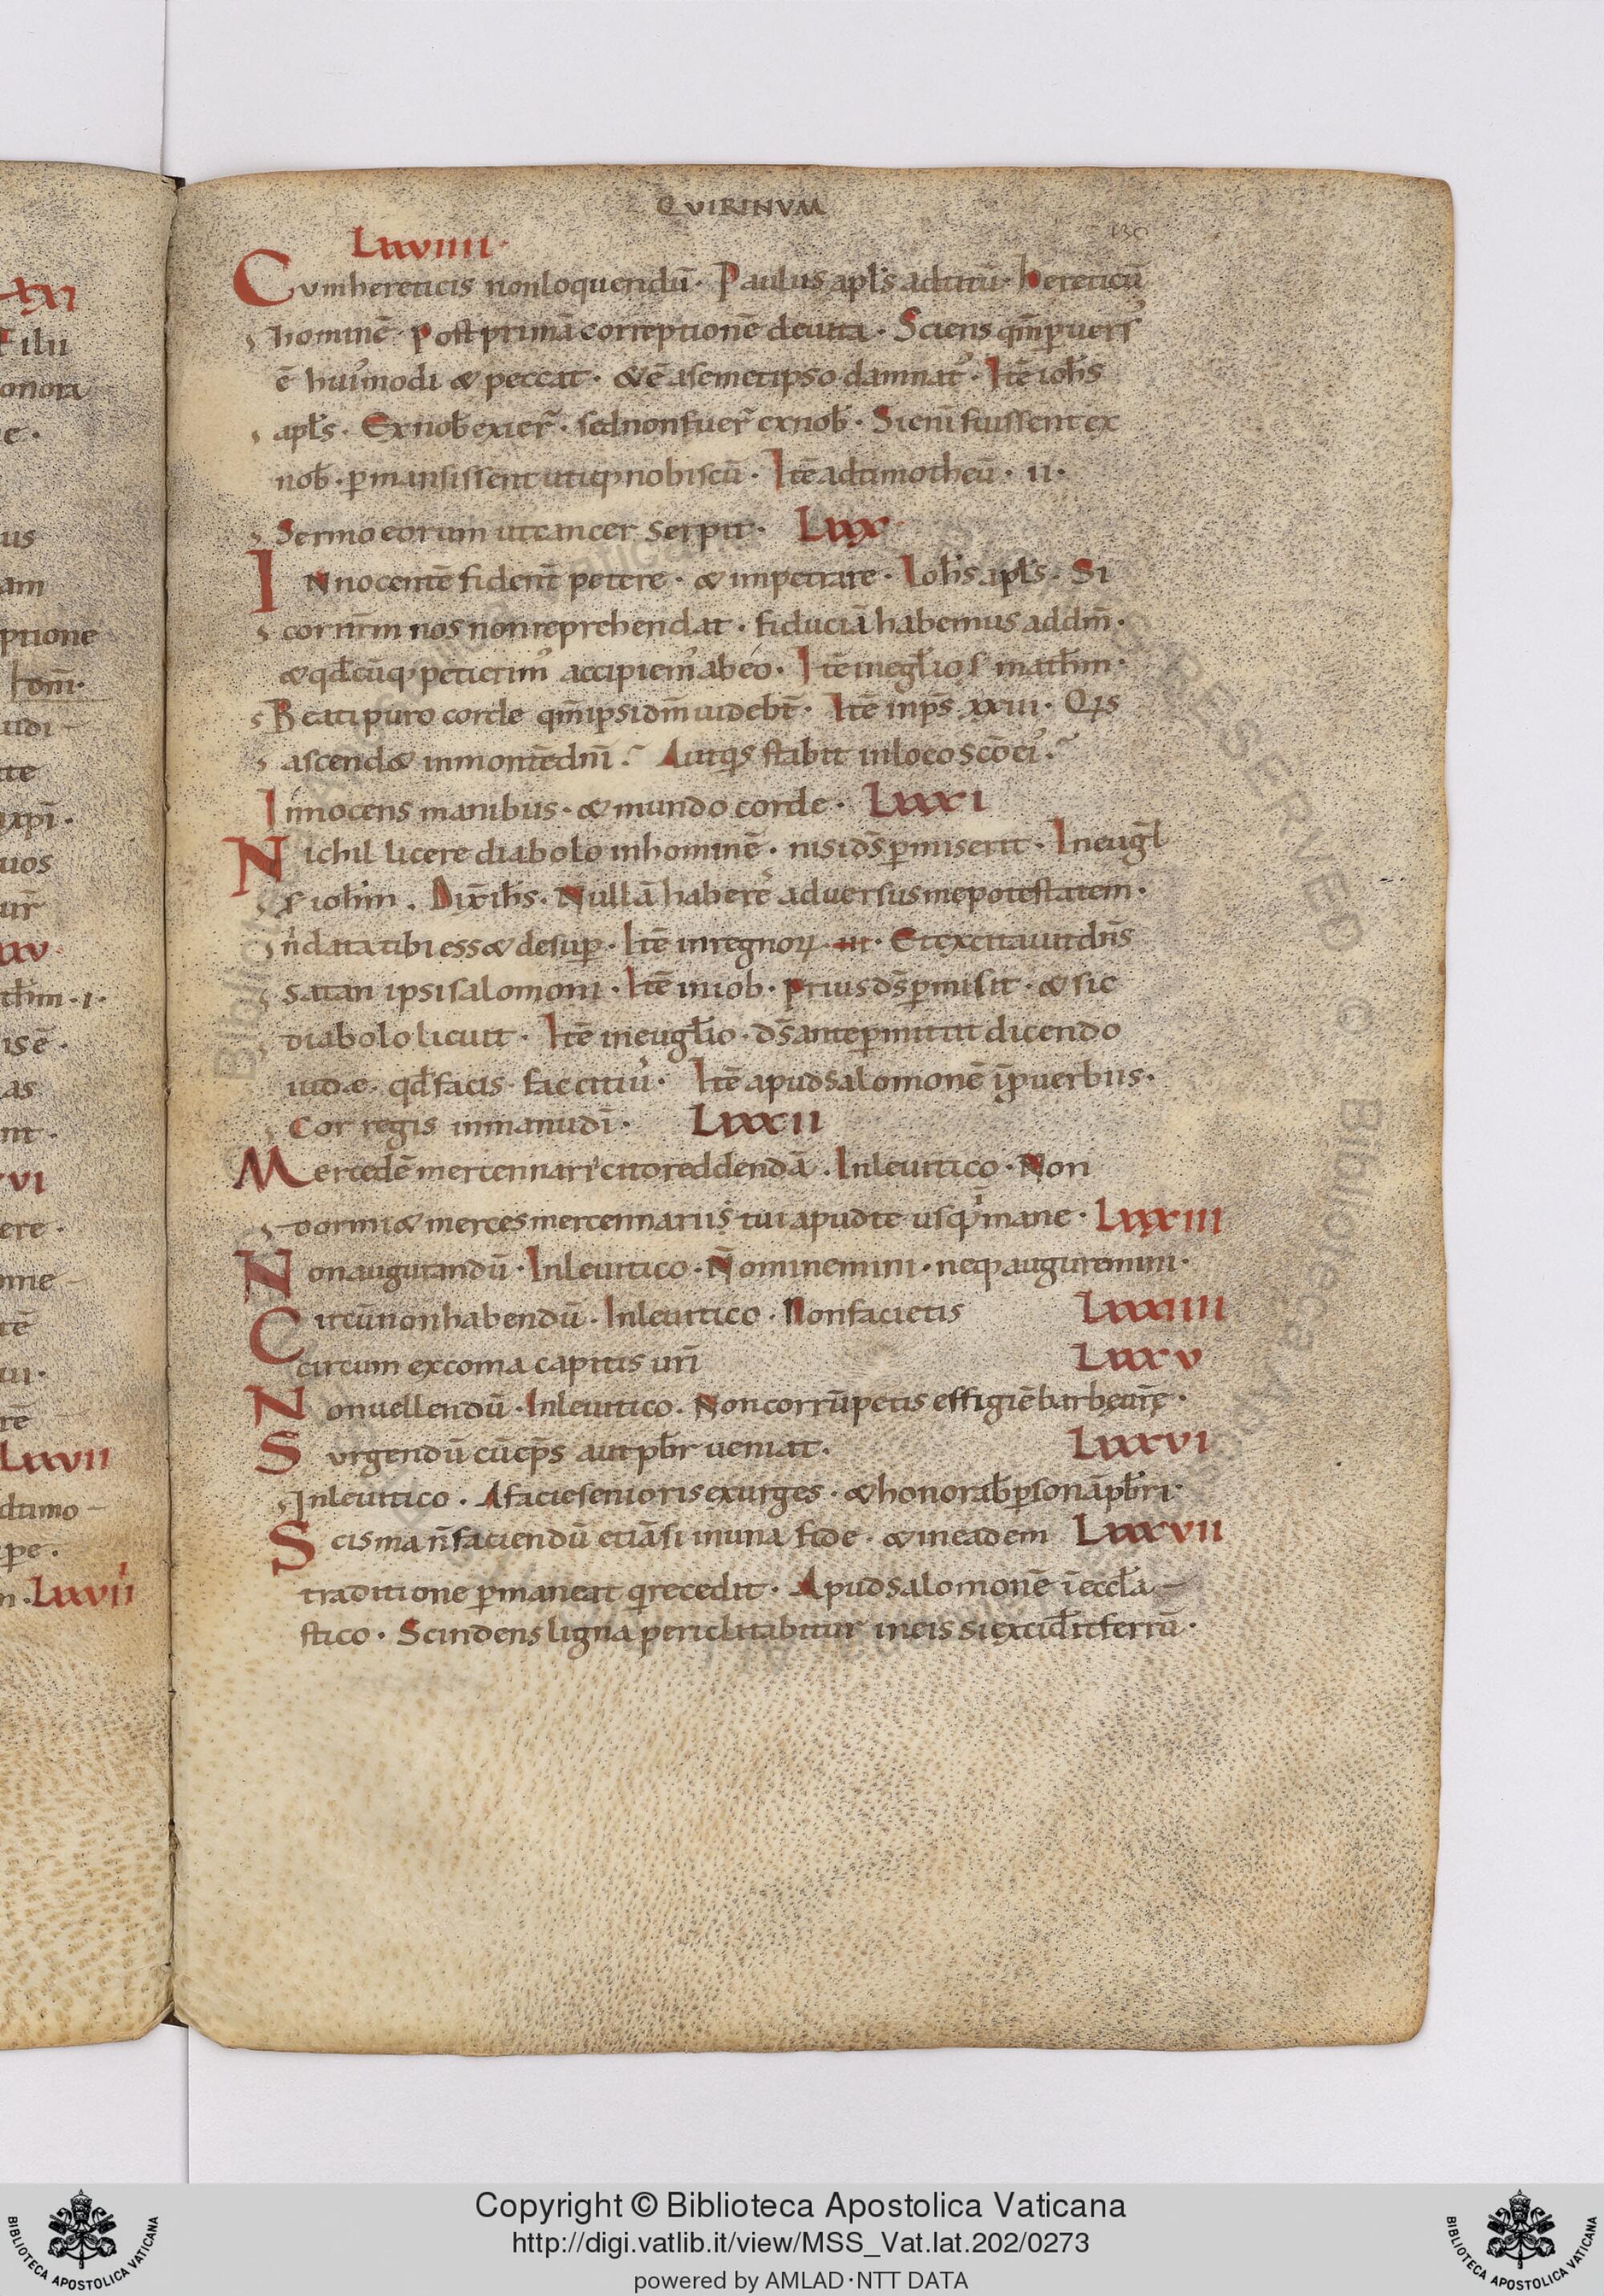 QUIRINVM
130
Lxxviiii·
Cvm hereticis non loquendū· Paulus apl̄s ad titū· hereticū
hominē· Post primā correptionē deuita· Sciens qm̄ puersꝰ
ē huiꝰmodi & peccat· & ē a semetipso damnatꝰ· Itē ioh̄s
apl̄s· Ex nob̄ exier̄· sed non fuer̄ ex nob̄· Si eni fuissent ex
nob̄· pmansissent utiq; nobiscū· Itē ad timotheū· II·
Sermo eorum ut cancer serpit· Lxxx
INnocentē fident̄ petere· & impetrare· Ioh̄s apl̄s· Si
cor nr̄m nos non reprehendat· fiduciā habemus ad dm̄·
& qd̄cūq; petierimꝰ accipiemꝰ ab eo· Itē in eugl̄io s̄ math̄m·
Beati puro corde qm̄ ipsi dm̄ uidebt̄· Itē in ps̄ xxiii· Qis
ascend& in montē dn̄i? Aut qis stabit in loco scō eiꝰ?
Innocens manibus· & mundo corde· Lxxxi
Nichil licere diabolo in hominē· nisi ds̄ pmiserit· In eugl̄
s̄ ioh̄m· Dix̄ ih̄s· Nullā haberē aduersus me potestatem·
n̄ data tibi ess& desup· Itē in regnoꝝ· iii· Et excitauit dn̄s
satan ipsi salomoni· Itē in iob· Prius ds̄ pmisit· & sic
diabolo licuit· Itē in eugl̄io· ds̄ ante pmittit dicendo
iudæ· qd̄ facis· fac citiꝰ· Itē apud salomonē ī puerbiis·
Cor regis in manu dī· Lxxxii
Mercedē mercennari cito reddendā· In leuitico· Non
dormi& merces mercennarii tui apud te usq; mane· Lxxxiii
Non augurandū· In leuitico· N̄ ominemini· neq; auguremini·
Circū non habendū· In leuitico· Non facietis Lxxxiiii
circum ex coma capitis ur̄i Lxxxv
Non uellendū· In leuitico· Non corrūpetis effigiē barbę ur̄ę·
Svrgendū cū ep̄s aut pb̄r ueniat· Lxxxvi
In leuitico· A facie senioris exurges· & honorab̄ psonā pb̄ri·
Scisma n̄ faciendū etiā si in una fide· & in eadem Lxxxvii
traditione pmaneat qi recedit· Apud salomonē ī eccl̄a–
stico· Scindens ligna periclitabitur in eis si excid̄it ferrū·
Copyright © Biblioteca Apostolica Vaticana
http://digi.vatlib.it/view/MSS_Vat.lat.202/0273
powered by AMLAD·NTT DATA
BIBLIOTECA APOSTOLICA VATICANA
BIBLIOTECA APOSTOLICA VATICANA